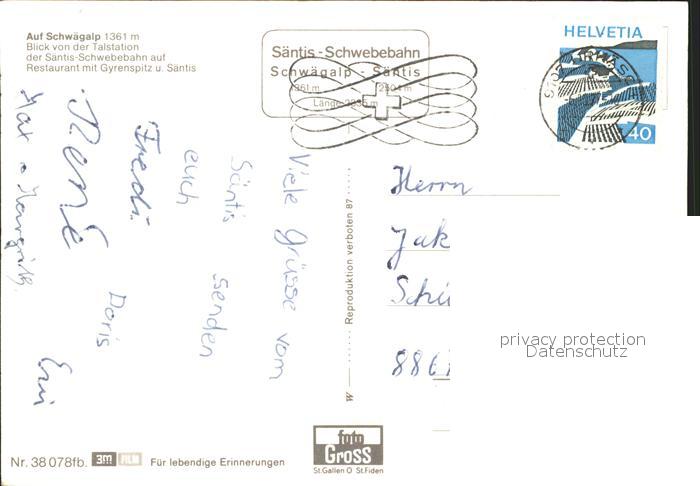 Auf Schwägalp 1361 m
Blick von der Talstation
der Säntis-Schwebebahn auf
Restaurant mit Gyrenspitz u. Säntis
Säntis-Schwebebahn
Schwägalp - Säntis
1361 m 2504 m
Länge
HELVETIA
40
Viele Grüsse vom
Säntis senden
euch
Doris
Fredi
René
Herrn
Jak
Schü
886
Reproduktion verboten 87
privacy protection
Datenschutz
foto
GROSS
St.Gallen O St.Fiden
Nr. 38 078fb. 3M FILM Für lebendige Erinnerungen